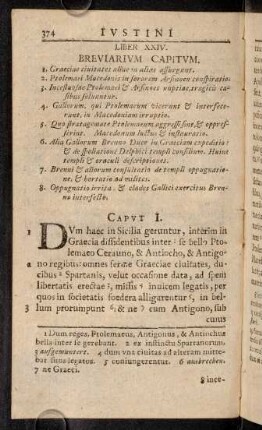 374 IVSTINI
LIBER XXIV.
BREVIARIVM CAPITVM.
1. Graeciae ciuitates aduersus assurgunt.
2. Ptolemaei Macedonis in sororem Arsinoen conspiratio.
3. Incestuosae Ptolemaei & Arsinoes nuptiae, tragicis
soluuntur.
4. Gallorum, qui Ptolemaeum vicerunt & interfecerunt,
in Macedoniam irruptio.
5. &
Macedonum luctus & instauratio.
6. Alia Gallorum Brenno Duce in Graeciam expeditio:
& despoliatione Delphici templi consilium. Huius
templi & oraculi descriptiones.
7. Brenni & aliorum consultatio de templi oppugnatione,
& hortatio ad milites.
8. Oppugnatio irrita, & clades Gallici exercitus Brenno
interfecto.
CAPVT I.
DVm haec in Sicilia geruntur, interim in
Graecia dissidentibus inter se bello Ptolemaeo
Cerauno, & Antiocho, & Antigono
regibus omnes ferme Graeciae ciuitates, ducibus
2 Spartanis, velut occasione data, ad spem
libertatis erectae, missis inuicem legatis, per
quos in societatis foedera alligarentur, in bellum
prorumpunt 6, & ne 7 cum Antigono, sub
cuius
1 Dum reges, Ptolemaeus, Antigonus, & Antiochus
bella inter se gerebant. 2 ex instinctu Spartanorum.
3 aufgemuntert. 4 dum vna ciuitas ad alteram mittebat
suos legatos. 5 coniungerentur. 6 ausbrechen.
7 ne Graeci.
8 ince-